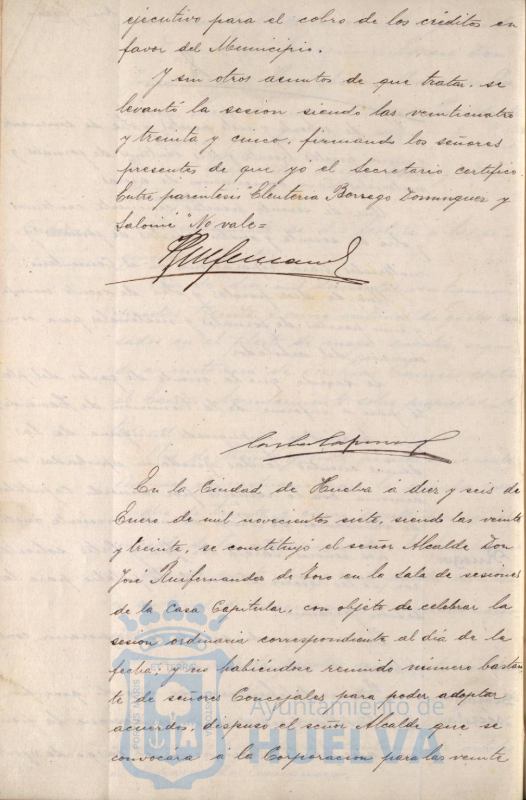 ejecutivo para el cobro de los créditos en
favor del Municipio.
Y sin otros asuntos de que tratar, se
levantó la sesion siendo las veinticuatro
y treinta y cinco, firmando los señores
presentes de que yo el Secretario certifico.
Entre parentesis "Eleuteria Borrego Dominguez y
Salomé" No vale=
En la Ciudad de Huelva á diez y seis de
Enero de mil novecientos siete, siendo las veinte
y treinta, se constituyó el señor Alcalde Don
José Ruifernandez de Toro en la Sala de sesiones
de la Casa Capitular, con objeto de celebrar la
sesión ordinaria correspondiente al día de la
fecha; y no habiéndose reunido número bastan-
te de señores Concejales para poder adoptar
acuerdo, dispuso el señor Alcalde que se
convocára á la Corporacion para las veinte
Ayuntamiento de
HUELVA